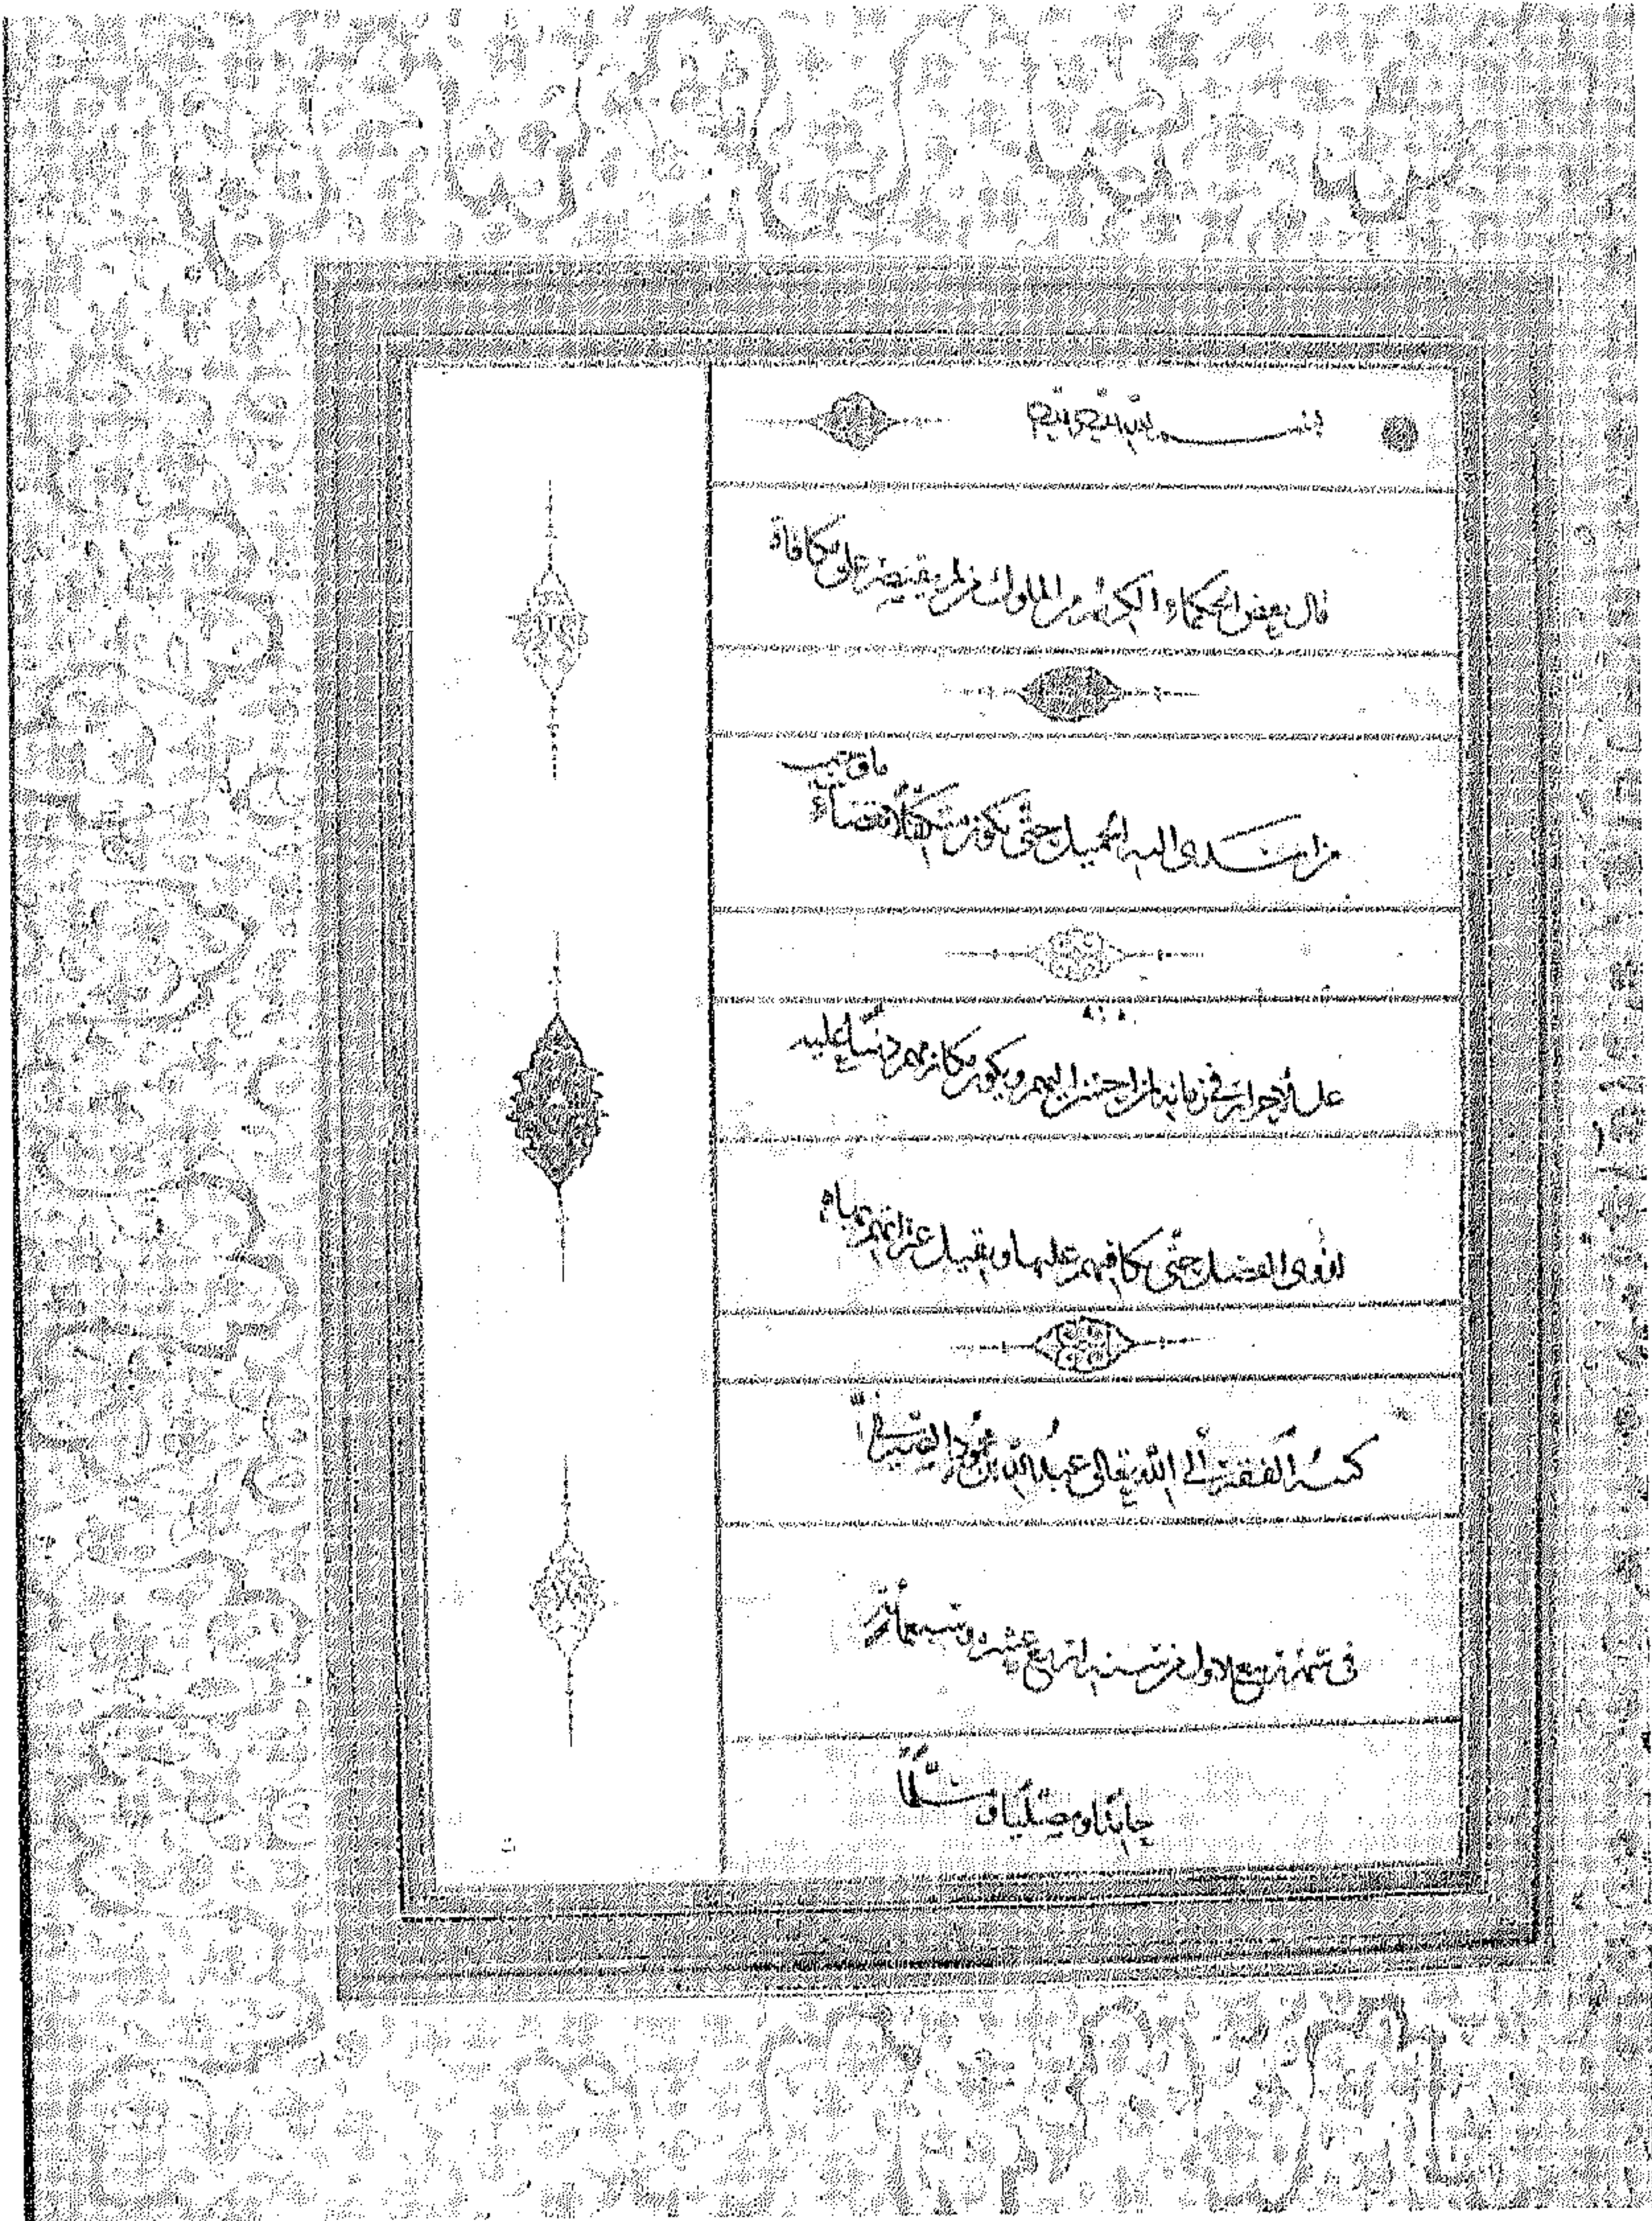 بسم الله الرحمن الرحيم
قال بعض الحكماء الكريم من الملوك من لم يقتصر على مكافاة
من اسدى اليه الجميل حتى يكون متكفلا قضاء ما وجب
على الاحرار في زمانه لمن احسن اليهم ويكون مكانهم دينا عليه
لذوى الفضل حتى يكافيهم عليها
كتبه الفقير الى الله تعالى عبد الله بن محمود
فى شهر ربيع الاول من سنة اربع عشره وسبعمائة
حامدا ومصليا ومسلما